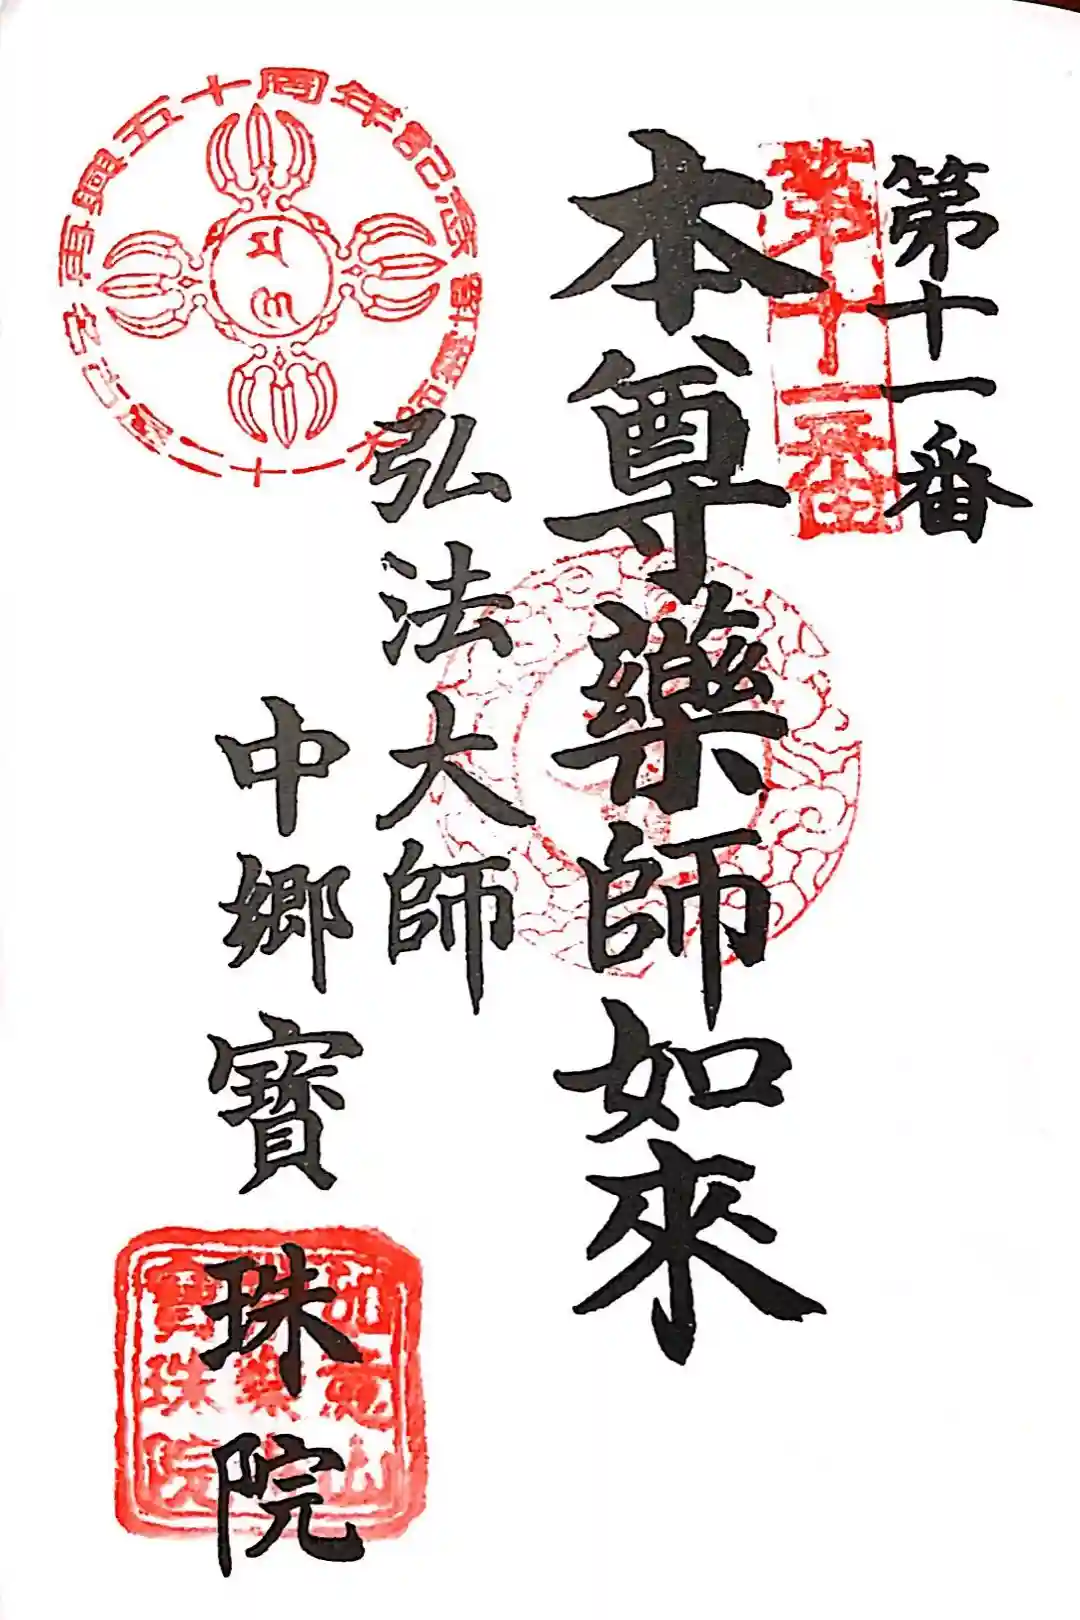 第十一番
第十一番
本尊藥師如來
弘法大師
中郷寶珠院
再興五十周年記念
寶珠院